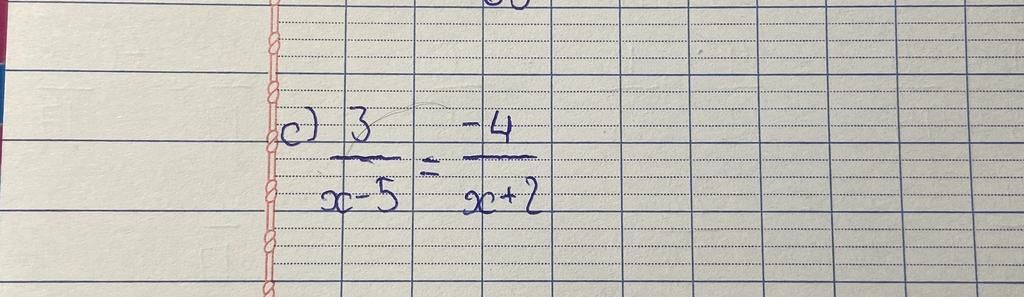 c) 3/(x-5) = -4/(x+2)